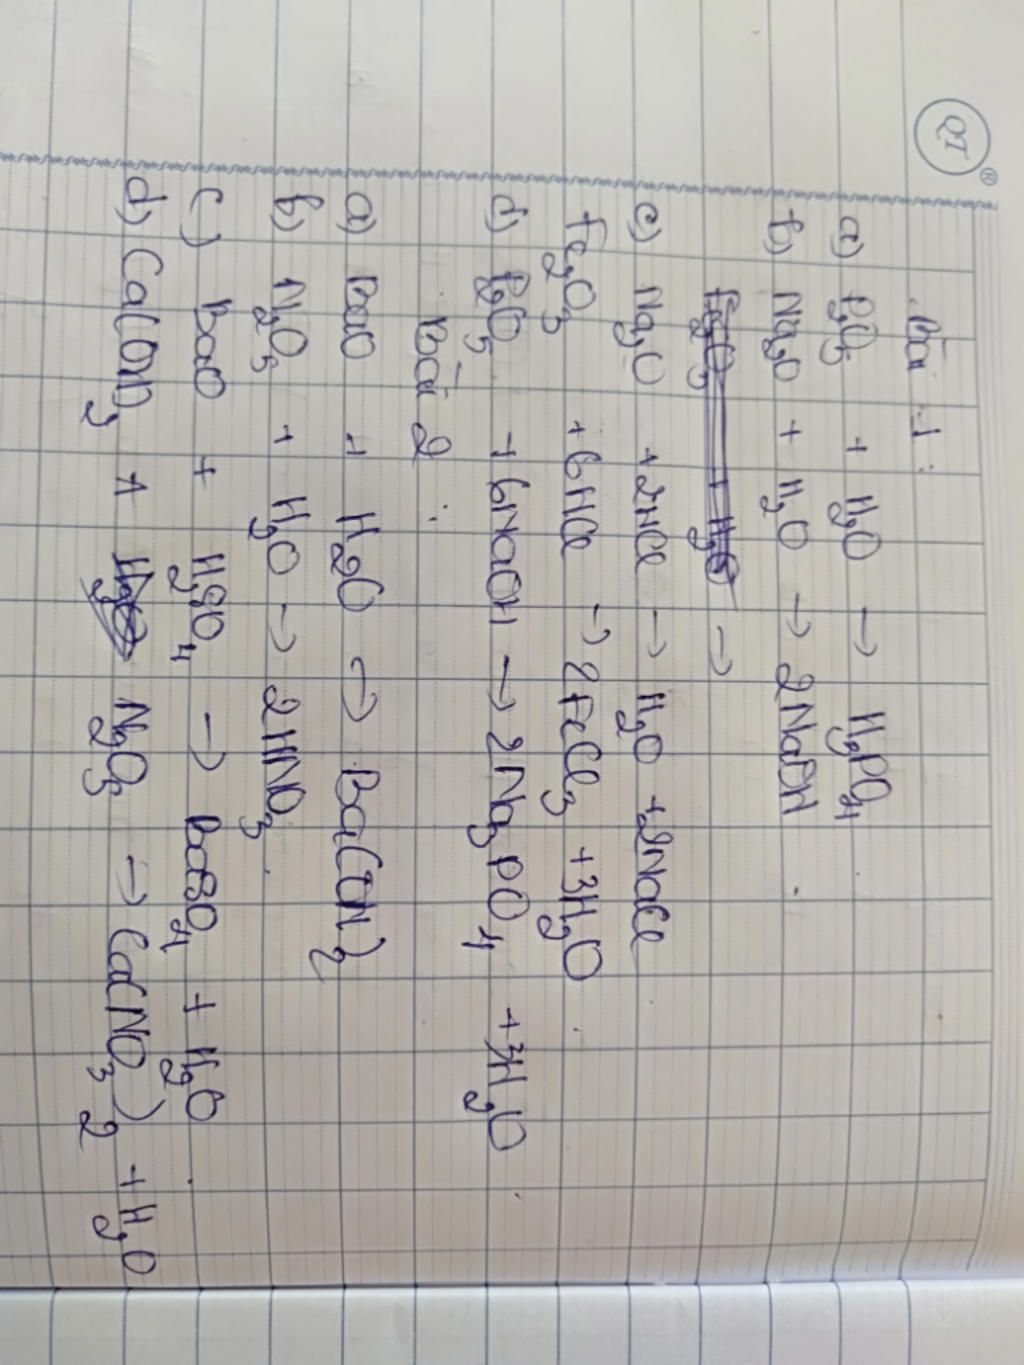 QT ®
Bài 1:
a) P₂O₅ + H₂O → H₃PO₄
b) Na₂O + H₂O → 2NaOH.
Fe₂O₃ + H₂O →
c) Na₂O + 2HCl → H₂O + 2NaCl
Fe₂O₃ + 6HCl → 2FeCl₃ + 3H₂O.
d) P₂O₅ + 6NaOH → 2Na₃PO₄ + 3H₂O.
Bài 2:
a) BaO + H₂O → Ba(OH)₂
b) N₂O₅ + H₂O → 2HNO₃.
c) BaO + H₂SO₄ → BaSO₄ + H₂O.
d) Ca(OH)₂ + N₂O₃ → Ca(NO₃)₂ + H₂O